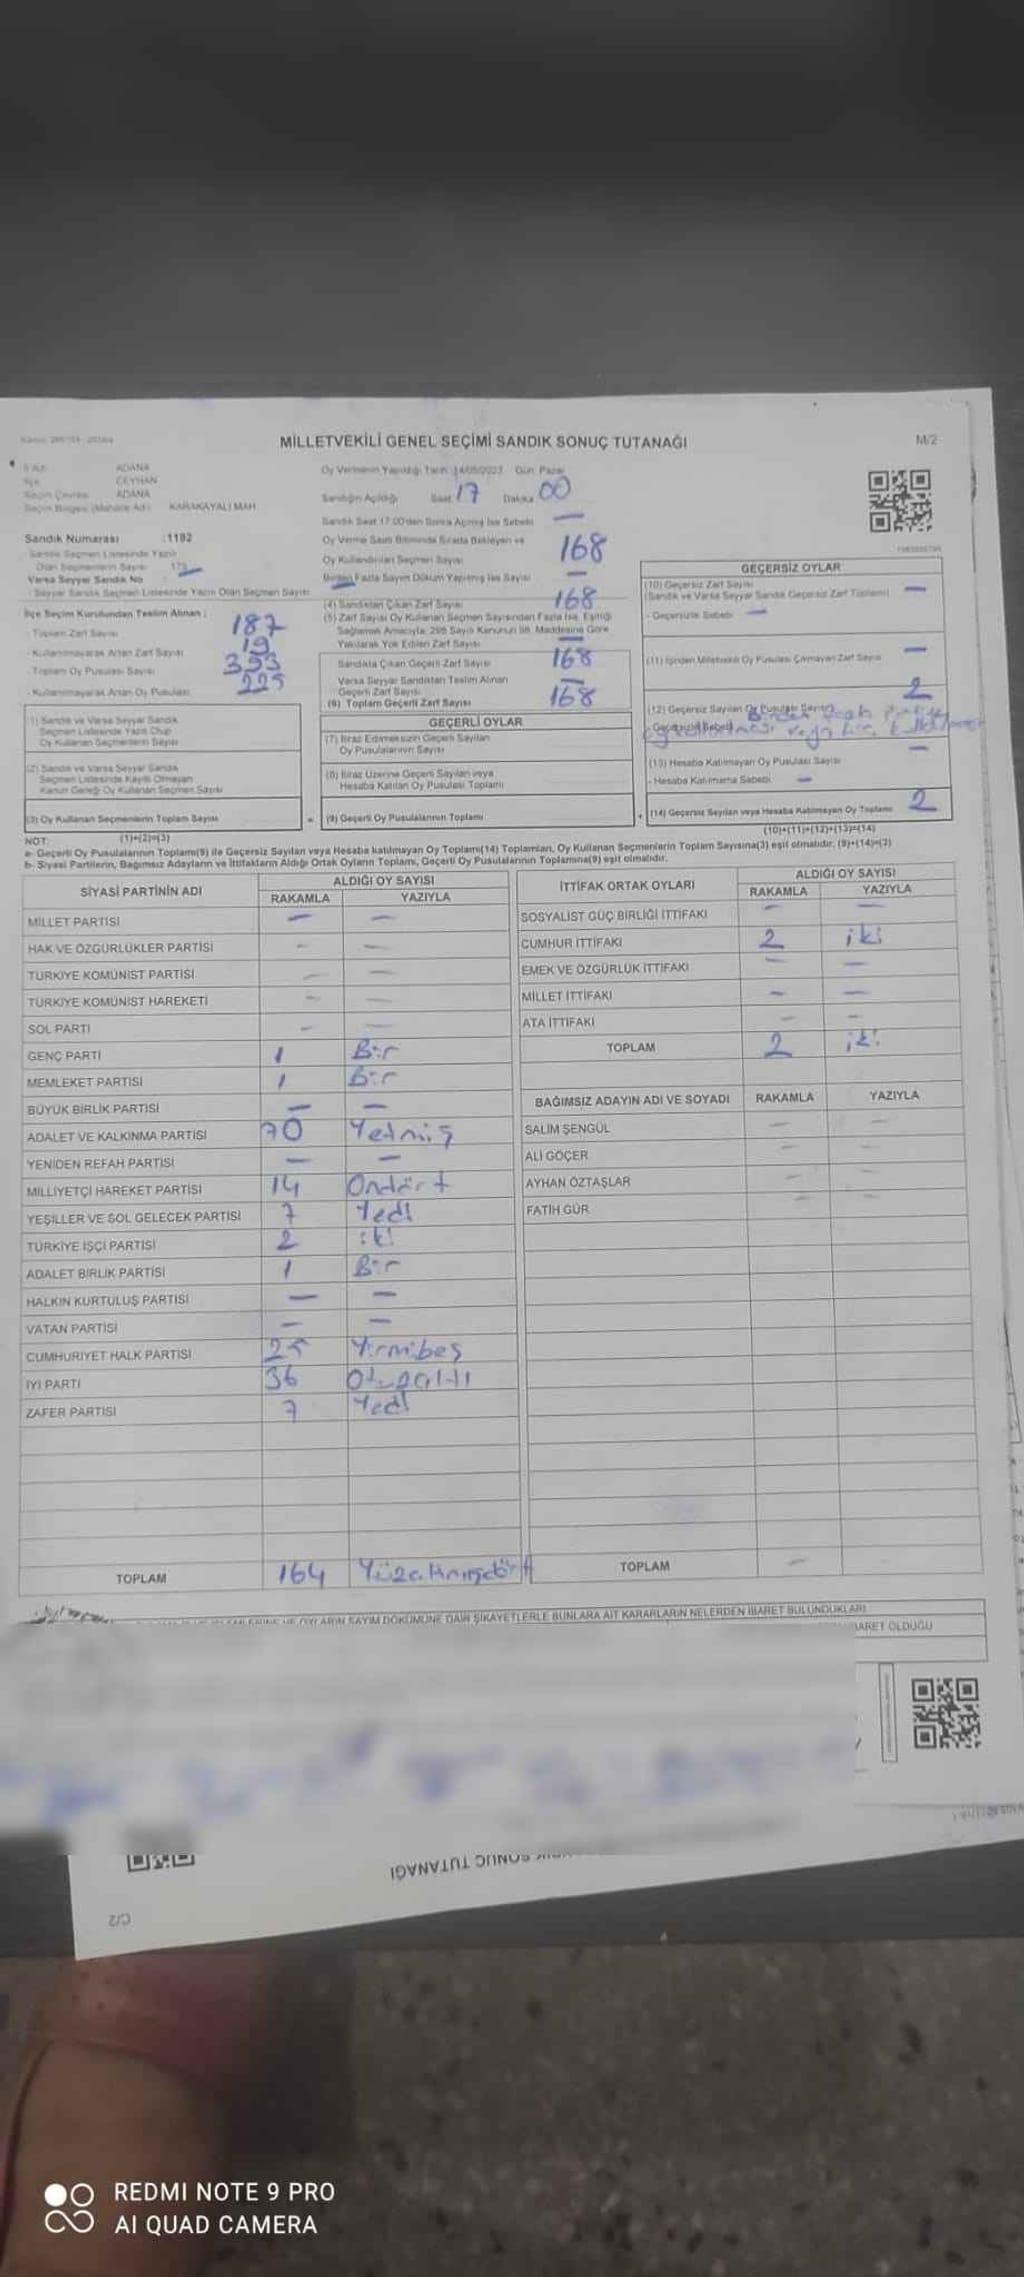 MİLLETVEKİLİ GENEL SEÇİMİ SANDIK SONUÇ TUTANAĞI
M/2
ADANA
CEYHAN
ADANA
KARAKAYALI MAH
Oy Vermenin Yapıldığı Tarih 14/05/2023 Gün Pazar
Sandığın Açıldığı Saat 17 Dakika 00
Sandık Saat 17:00'den Sonra Açılmış İse Sebebi —
Sandık Numarası :1192
Sandık Seçmen Listesinde Yazılı
Olan Seçmenlerin Sayısı
Varsa Seyyar Sandık No
Seyyar Sandık Seçmen Listesinde Yazılı Olan Seçmen Sayısı
İlçe Seçim Kurulundan Teslim Alınan :
- Toplam Zarf Sayısı 187
- Kullanılmayarak Artan Zarf Sayısı 19
- Toplam Oy Pusulası Sayısı 393
- Kullanılmayarak Artan Oy Pusulası 225
(1) Sandık ve Varsa Seyyar Sandık
Seçmen Listesinde Yazılı Olup
Oy Kullanan Seçmenlerin Sayısı
(2) Sandık ve Varsa Seyyar Sandık
Seçmen Listesinde Kayıtlı Olmayan
Kanun Gereği Oy Kullanan Seçmen Sayısı
(3) Oy Kullanan Seçmenlerin Toplam Sayısı
=
Oy Verme Saati Bitiminde Sırada Bekleyen ve
Oy Kullandırılan Seçmen Sayısı 168
Birden Fazla Sayım Döküm Yapılmış İse Sayısı —
(4) Sandıktan Çıkan Zarf Sayısı 168
(5) Zarf Sayısı Oy Kullanan Seçmen Sayısından Fazla İse, Eşitliği
Sağlamak Amacıyla, 298 Sayılı Kanunun 98. Maddesine Göre
Yakılarak Yok Edilen Zarf Sayısı —
Sandıkta Çıkan Geçerli Zarf Sayısı 168
Varsa Seyyar Sandıktan Teslim Alınan
Geçerli Zarf Sayısı —
(6) Toplam Geçerli Zarf Sayısı 168
GEÇERLİ OYLAR
(7) İtiraz Edilmeksizin Geçerli Sayılan
Oy Pusulalarının Sayısı
(8) İtiraz Üzerine Geçerli Sayılan veya
Hesaba Katılan Oy Pusulası Toplamı
(9) Geçerli Oy Pusulalarının Toplamı
+
GEÇERSİZ OYLAR
(10) Geçersiz Zarf Sayısı
(Sandık ve Varsa Seyyar Sandık Geçersiz Zarf Toplamı) —
- Geçersizlik Sebebi —
(11) İçinden Milletvekili Oy Pusulası Çıkmayan Zarf Sayısı —
(12) Geçersiz Sayılan Oy Pusulası Sayısı 2
- Geçersizlik Sebebi
(13) Hesaba Katılmayan Oy Pusulası Sayısı —
- Hesaba Katılmama Sebebi —
(14) Geçersiz Sayılan veya Hesaba Katılmayan Oy Toplamı 2
NOT: (1)+(2)=(3)
(10)+(11)+(12)+(13)=(14)
a- Geçerli Oy Pusulalarının Toplamı(9) ile Geçersiz Sayılan veya Hesaba katılmayan Oy Toplamı(14) Toplamları, Oy Kullanan Seçmenlerin Toplam Sayısına(3) eşit olmalıdır. (9)+(14)=(3)
b- Siyasi Partilerin, Bağımsız Adayların ve İttifakların Aldığı Ortak Oyların Toplamı, Geçerli Oy Pusulalarının Toplamına(9) eşit olmalıdır.
SİYASİ PARTİNİN ADI ALDIĞI OY SAYISI
RAKAMLA YAZIYLA
MİLLET PARTİSİ — —
HAK VE ÖZGÜRLÜKLER PARTİSİ — —
TÜRKİYE KOMÜNİST PARTİSİ — —
TÜRKİYE KOMÜNİST HAREKETİ — —
SOL PARTİ — —
GENÇ PARTİ 1 Bir
MEMLEKET PARTİSİ 1 Bir
BÜYÜK BİRLİK PARTİSİ — —
ADALET VE KALKINMA PARTİSİ 70 Yetmiş
YENİDEN REFAH PARTİSİ — —
MİLLİYETÇİ HAREKET PARTİSİ 14 Ondört
YEŞİLLER VE SOL GELECEK PARTİSİ 7 Yedi
TÜRKİYE İŞÇİ PARTİSİ 2 iki
ADALET BİRLİK PARTİSİ 1 Bir
HALKIN KURTULUŞ PARTİSİ — —
VATAN PARTİSİ — —
CUMHURİYET HALK PARTİSİ 25 Yirmibeş
İYİ PARTİ 36 Otuzaltı
ZAFER PARTİSİ 7 Yedi
TOPLAM 164 Yüzaltmışdört
İTTİFAK ORTAK OYLARI ALDIĞI OY SAYISI
RAKAMLA YAZIYLA
SOSYALİST GÜÇ BİRLİĞİ İTTİFAKI — —
CUMHUR İTTİFAKI 2 iki
EMEK VE ÖZGÜRLÜK İTTİFAKI — —
MİLLET İTTİFAKI — —
ATA İTTİFAKI — —
TOPLAM 2 iki
BAĞIMSIZ ADAYIN ADI VE SOYADI RAKAMLA YAZIYLA
SALİM ŞENGÜL — —
ALİ GÖÇER — —
AYHAN ÖZTAŞLAR — —
FATİH GÜR — —
TOPLAM —
OYLARIN SAYIM DÖKÜMÜNE DAİR ŞİKAYETLERLE BUNLARA AİT KARARLARIN NELERDEN İBARET BULUNDUKLARI
İBARET OLDUĞU
SONUÇ TUTANAĞI
C/2
REDMI NOTE 9 PRO
AI QUAD CAMERA